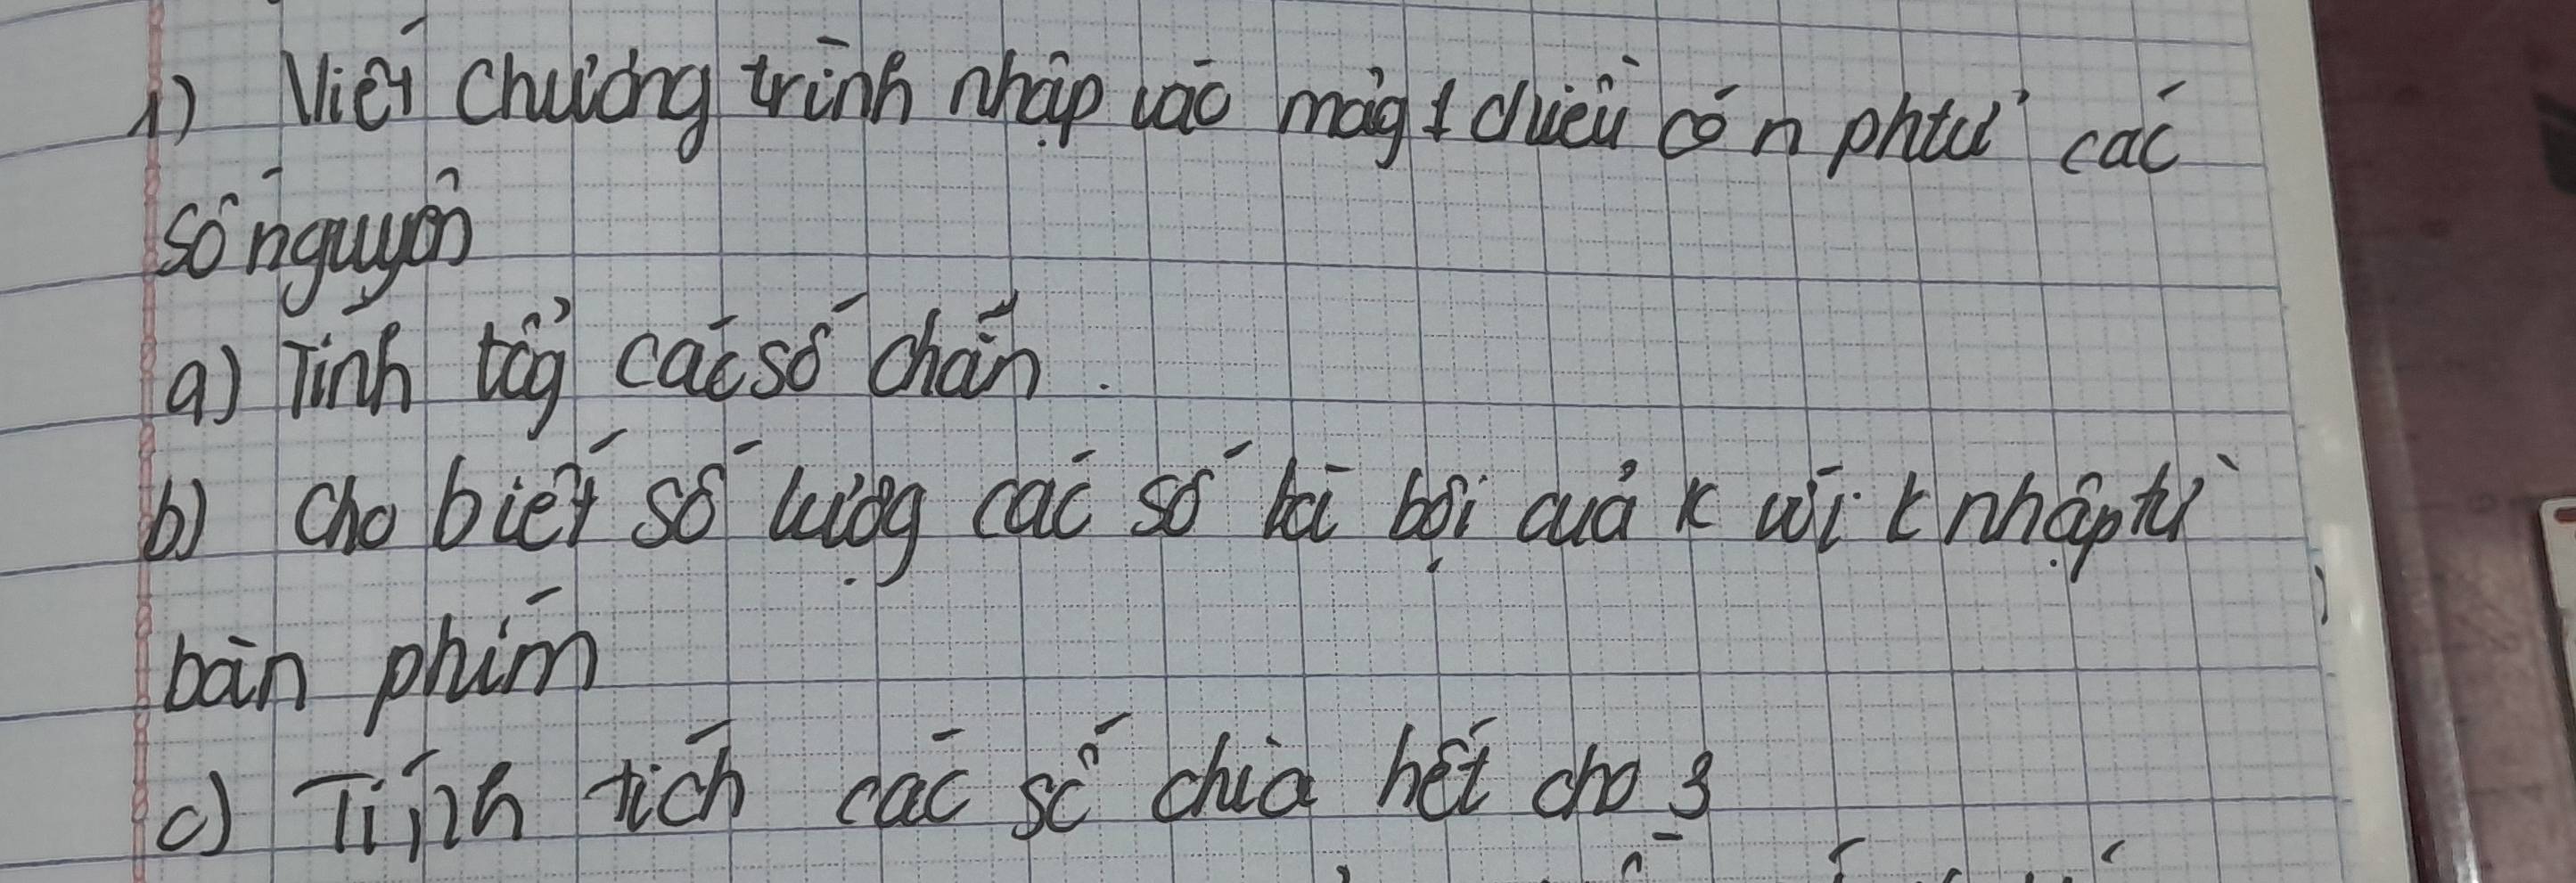 1) Viết chương trình nhập vào mảg 1 chiều có n phtử các
số nguyên
a) Tính tổg các số chẵn.
b) Cho biết số lượg các số là bội của k với k nhập từ
bàn phím
c) Tính tích các số chia hết cho 3